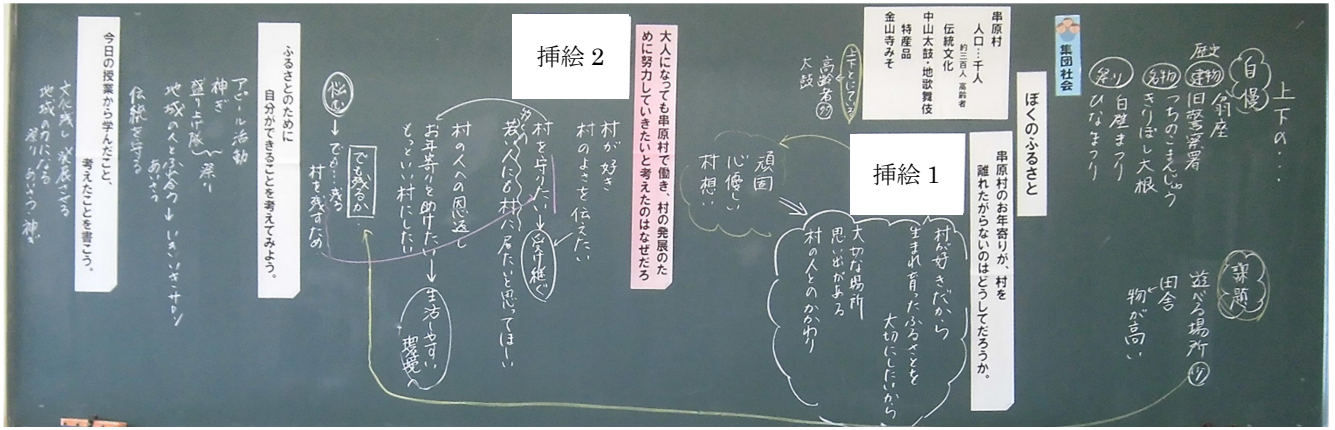 上下の・・・
自慢
歴史
建物
翁座
旧警察署
名物
つちのこまんじゅう
きりぼし大根
祭り
白壁まつり
ひなまつり
課題
遊べる場所 少
田舎
物が高い
集団社会
ぼくのふるさと
串原村
人口…千人
約三百人 高齢者
伝統文化
中山太鼓・地歌舞伎
特産品
金山寺みそ
上下とにている
高齢者 多
太鼓
串原村のお年寄りが、村を
離れたがらないのはどうしてだろうか。
挿絵1
村が好きだから
生まれ育ったふるさとを
大切にしたいから
大切な場所
思い出がある
村の人とのかかわり
頑固
心優しい
村想い
大人になっても串原村で働き、村の発展のた
めに努力していきたいと考えたのはなぜだろ
挿絵2
村が好き
村のよさを伝えたい
村を守りたい→受け継ぐ
若い人にも村に居たいと思ってほしい
村の人への恩返し
お年寄りを助けたい→生活しやすい
環境へ
もっといい村にしたい
悩む
でも残るか
村を残すため
ふるさとのために
自分ができることを考えてみよう。
アピール活動
神ぎ
盛り上げ隊
祭り
地域の人とふれ合う→いきいきサロン
あいさつ
伝統を守る
今日の授業から学んだこと、
考えたことを書こう。
文化残し 発展させる
地域の力になる
祭り あいさつ 神ぎ